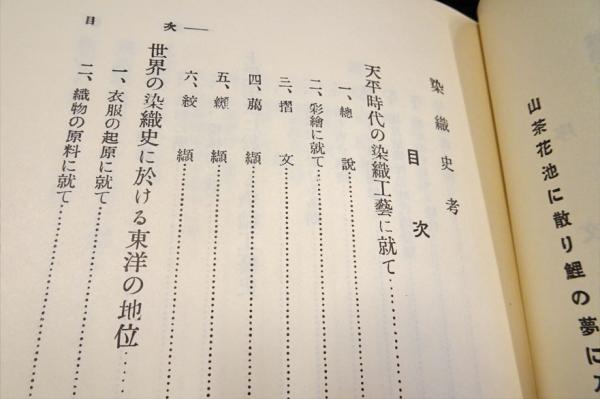 山茶花池に散り鯉の夢に
染織史考
目次
天平時代の染織工藝に就て
一、總說
二、彩繪に就て
三、摺文
四、﨟纈
五、纐纈
六、絞纈
世界の染織史に於ける東洋の地位
一、衣服の起原に就て
二、織物の原料に就て
目次 一